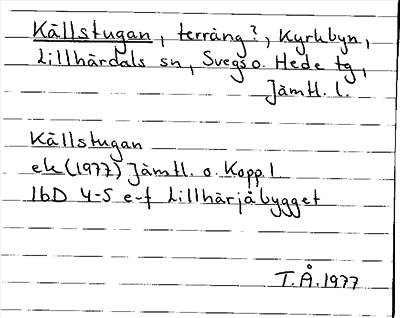 Källstugan, terräng?, Kyrkbyn,
Lillhärdals sn, Svegs o. Hede tg,
Jämtl. l.
Källstugan
ek (1977) Jämtl. o. Kopp. l
16D 4-5 e-f Lillhärjåbygget
T.Å. 1977